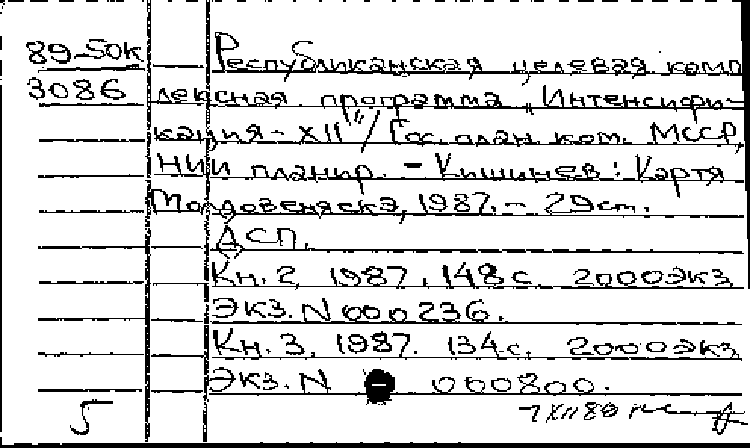 89-50к Республиканская целевая комп
3086 лексная программа „Интенсифи-
кация-XII"/ Гос. план. ком. МССР,
НИИ планир. - Кишинев: Картя
Молдовеняскэ, 1987. - 29 cm.
ДСП.
Кн. 2, 1987. 148 с. 2000 экз
Экз. N 000236.
Кн. 3. 1987. 134 с. 2000 экз
Экз. N 000800.
5